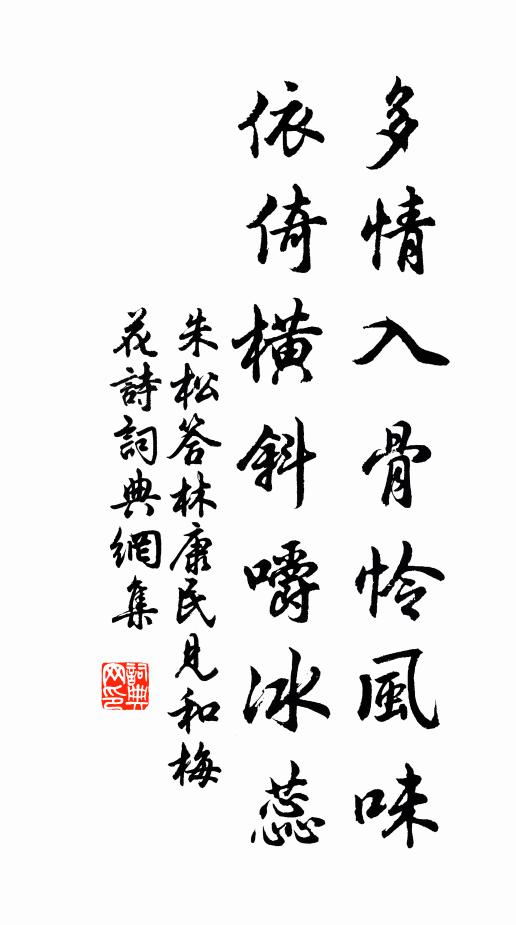 多情入骨怜風味
依倚橫斜嚼冰蕊
朱松答林康民見和梅
花詩詞典網集
詞典
网印